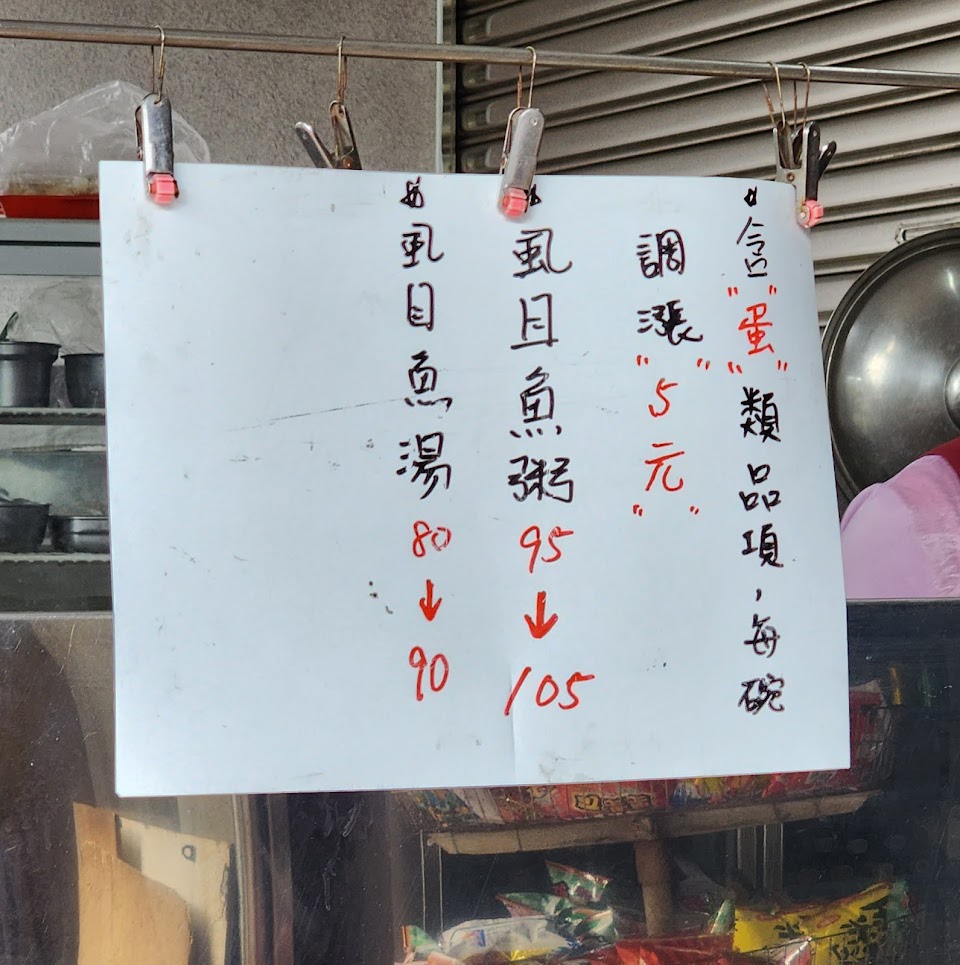 *含"蛋"類品項,每碗
調漲"5元"
*虱目魚粥95↓105
*虱目魚湯80↓90